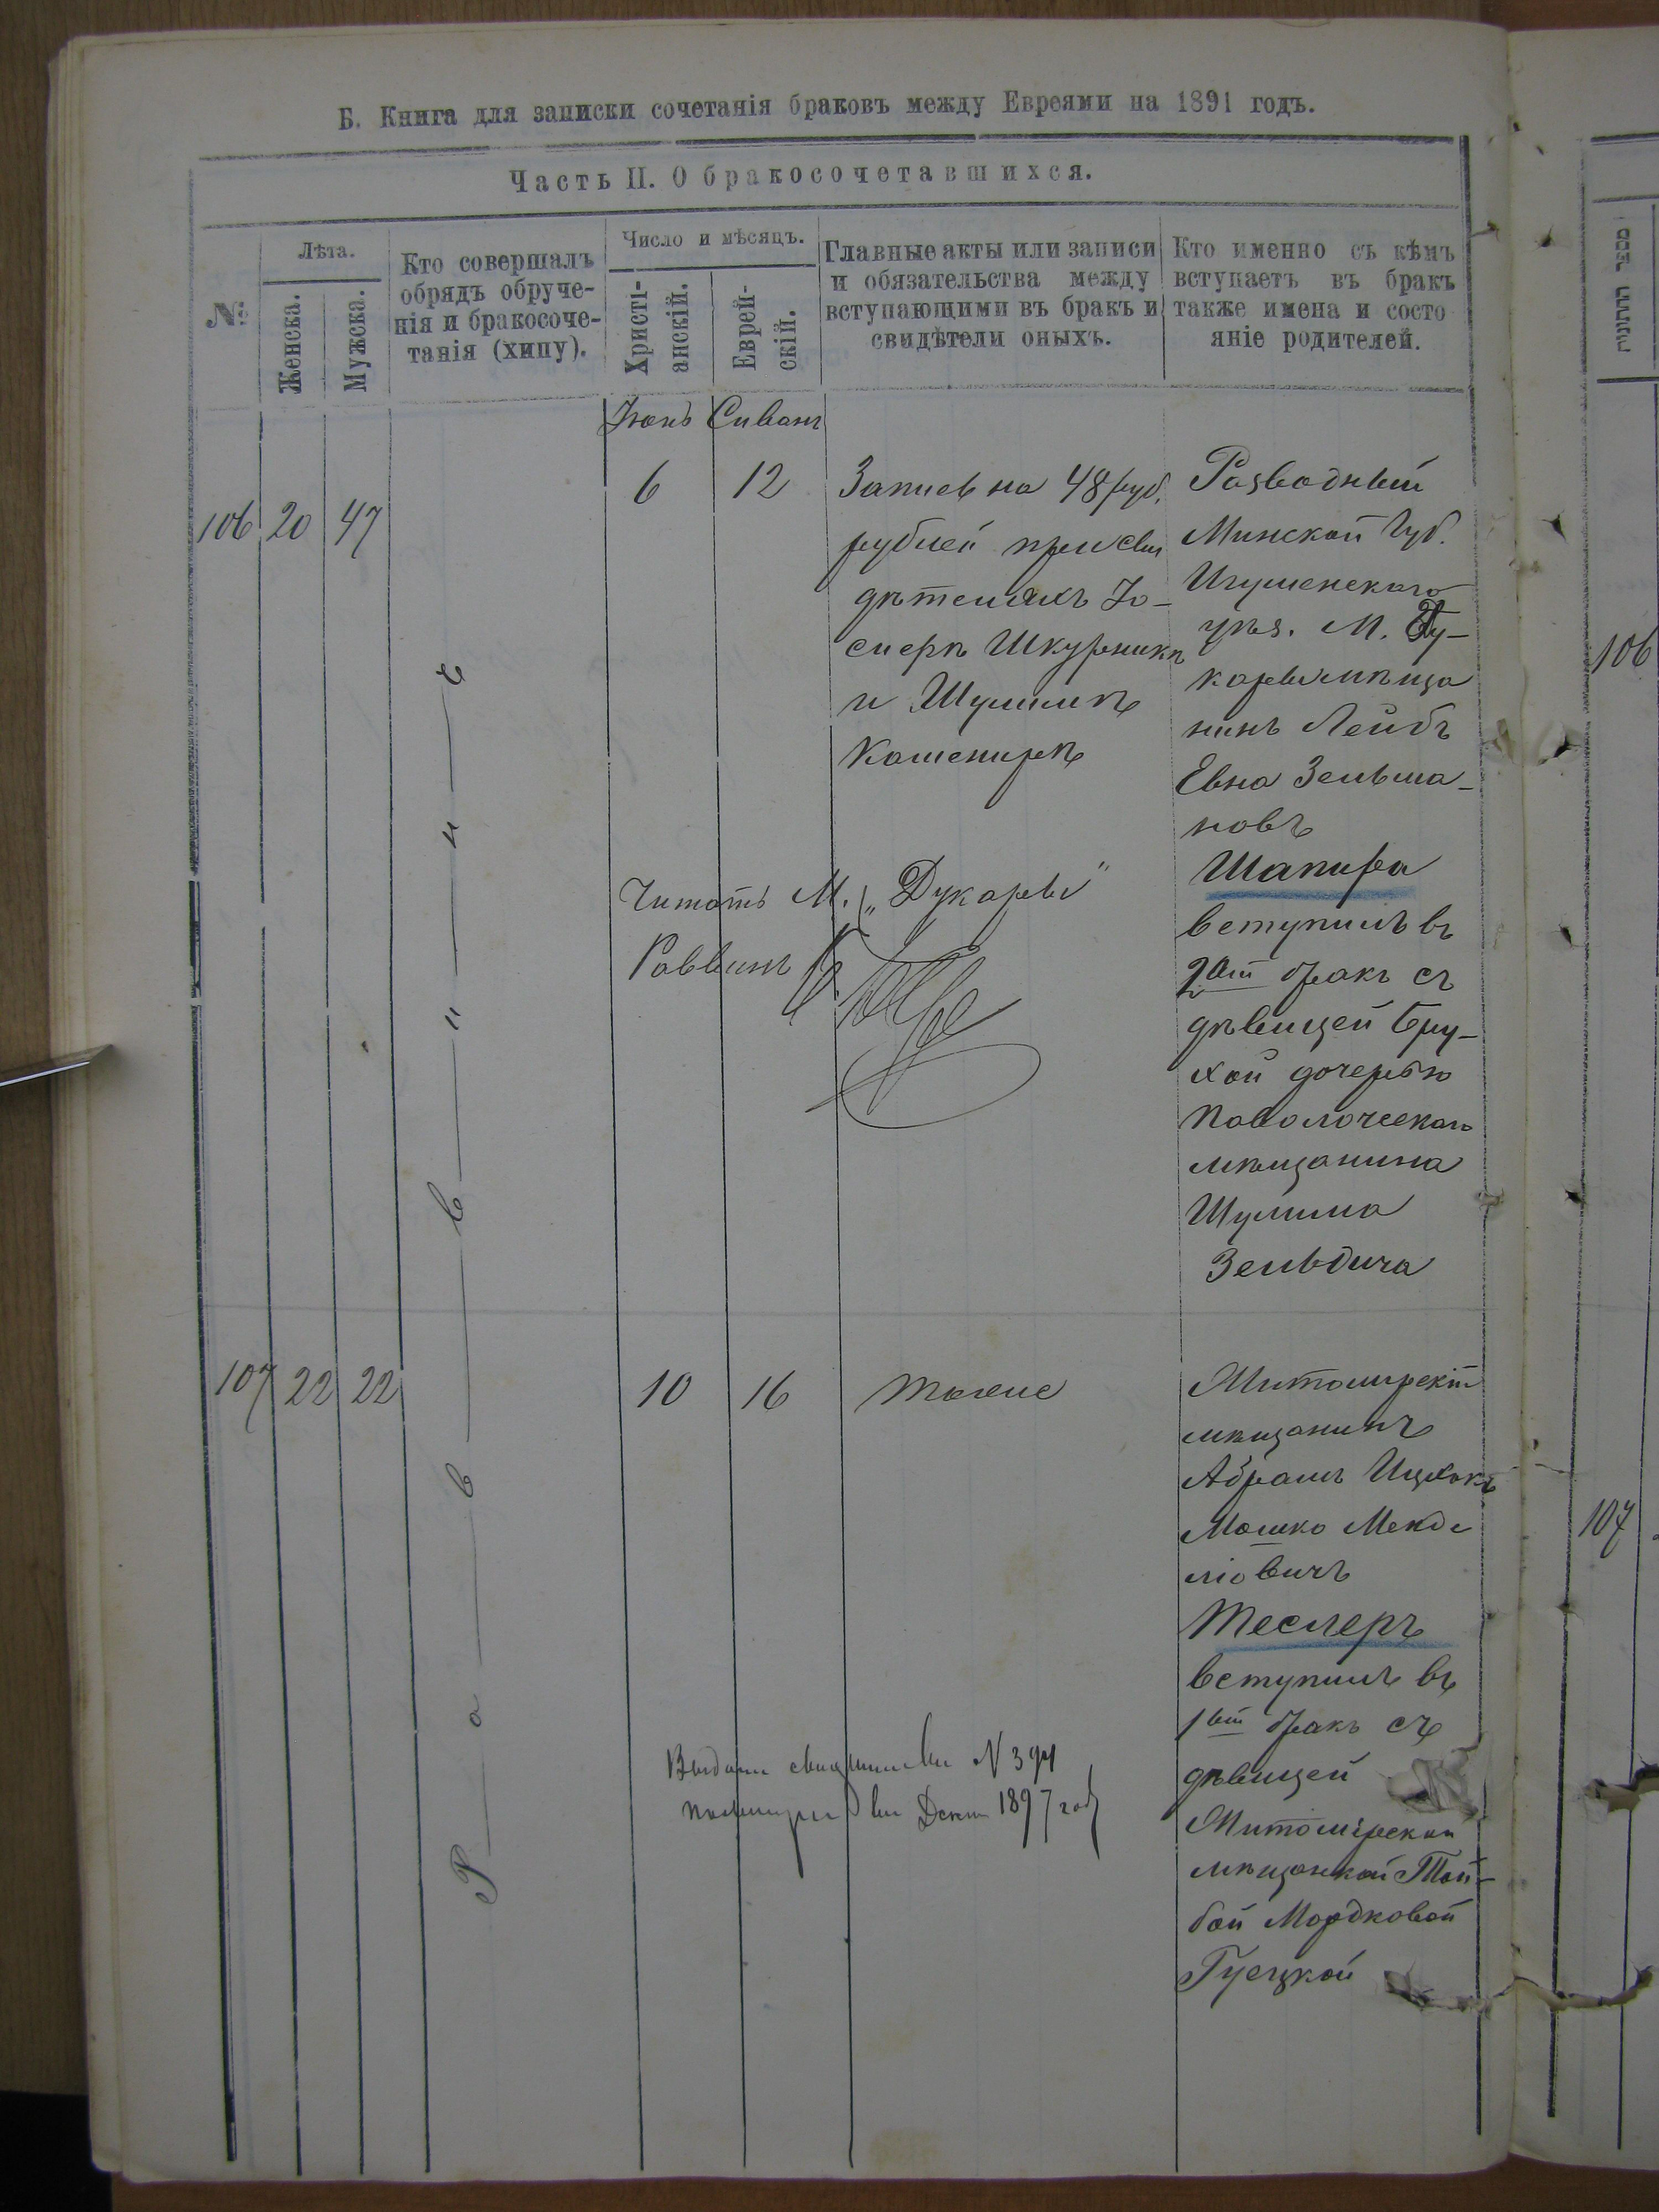 Б. Книга для записки сочетанія браковъ между Евреями на 1891 годъ.
Часть II. О бракосочетавшихся.
№
Лѣта.
Женска.
Мужска.
Кто совершалъ
обрядъ обруче-
нія и бракосоче-
танія (хипу).
Число и мѣсяцъ.
Христі-
анскій.
Еврей-
скій.
Главные акты или записи
и обязательства между
вступающими въ бракъ и
свидѣтели оныхъ.
Кто именно съ кѣмъ
вступаетъ въ бракъ
также имена и состо
яніе родителей.
Іюнь Сиванъ
106 20 47
6 12
Запись на 48 руб.
рублей при сви
дѣтеляхъ Іо-
сифѣ Шкурникѣ
и Шулимѣ
Кошенирѣ
Разводный
Минской Губ.
Игуменскаго
уѣз. М. Ду-
коры мѣща
нинъ Лейбъ
Евна Зельма-
новъ
Шапира
вступилъ въ
2ой бракъ съ
дѣвицей Бру-
хой дочерью
Паволочскаго
мѣщанина
Шулима
Зельдича
Читать М. „Дукоры"
Раввинъ
Р а в в и н ъ
107 22 22
10 16
тоже
Житомирскій
мѣщанинъ
Абрамъ Ицхокъ
Мошко Менде
ліовичъ
Теслеръ
вступилъ въ
1ый бракъ съ
дѣвицей
Житомірской
мѣщанкой Той-
бой Мордковой
Гусцкой
1897 год
106
107